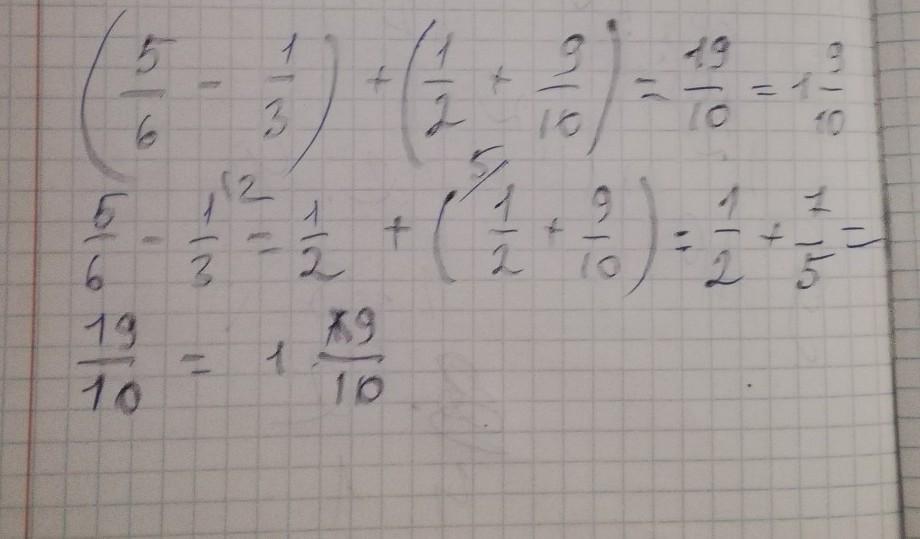 (5/6 - 1/3) + (1/2 + 9/10) = 19/10 = 1 9/10
5/6 - 1/3 (2 = 1/2 + (5/ 1/2 + 9/10) = 1/2 + 7/5 =
19/10 = 1 9/10